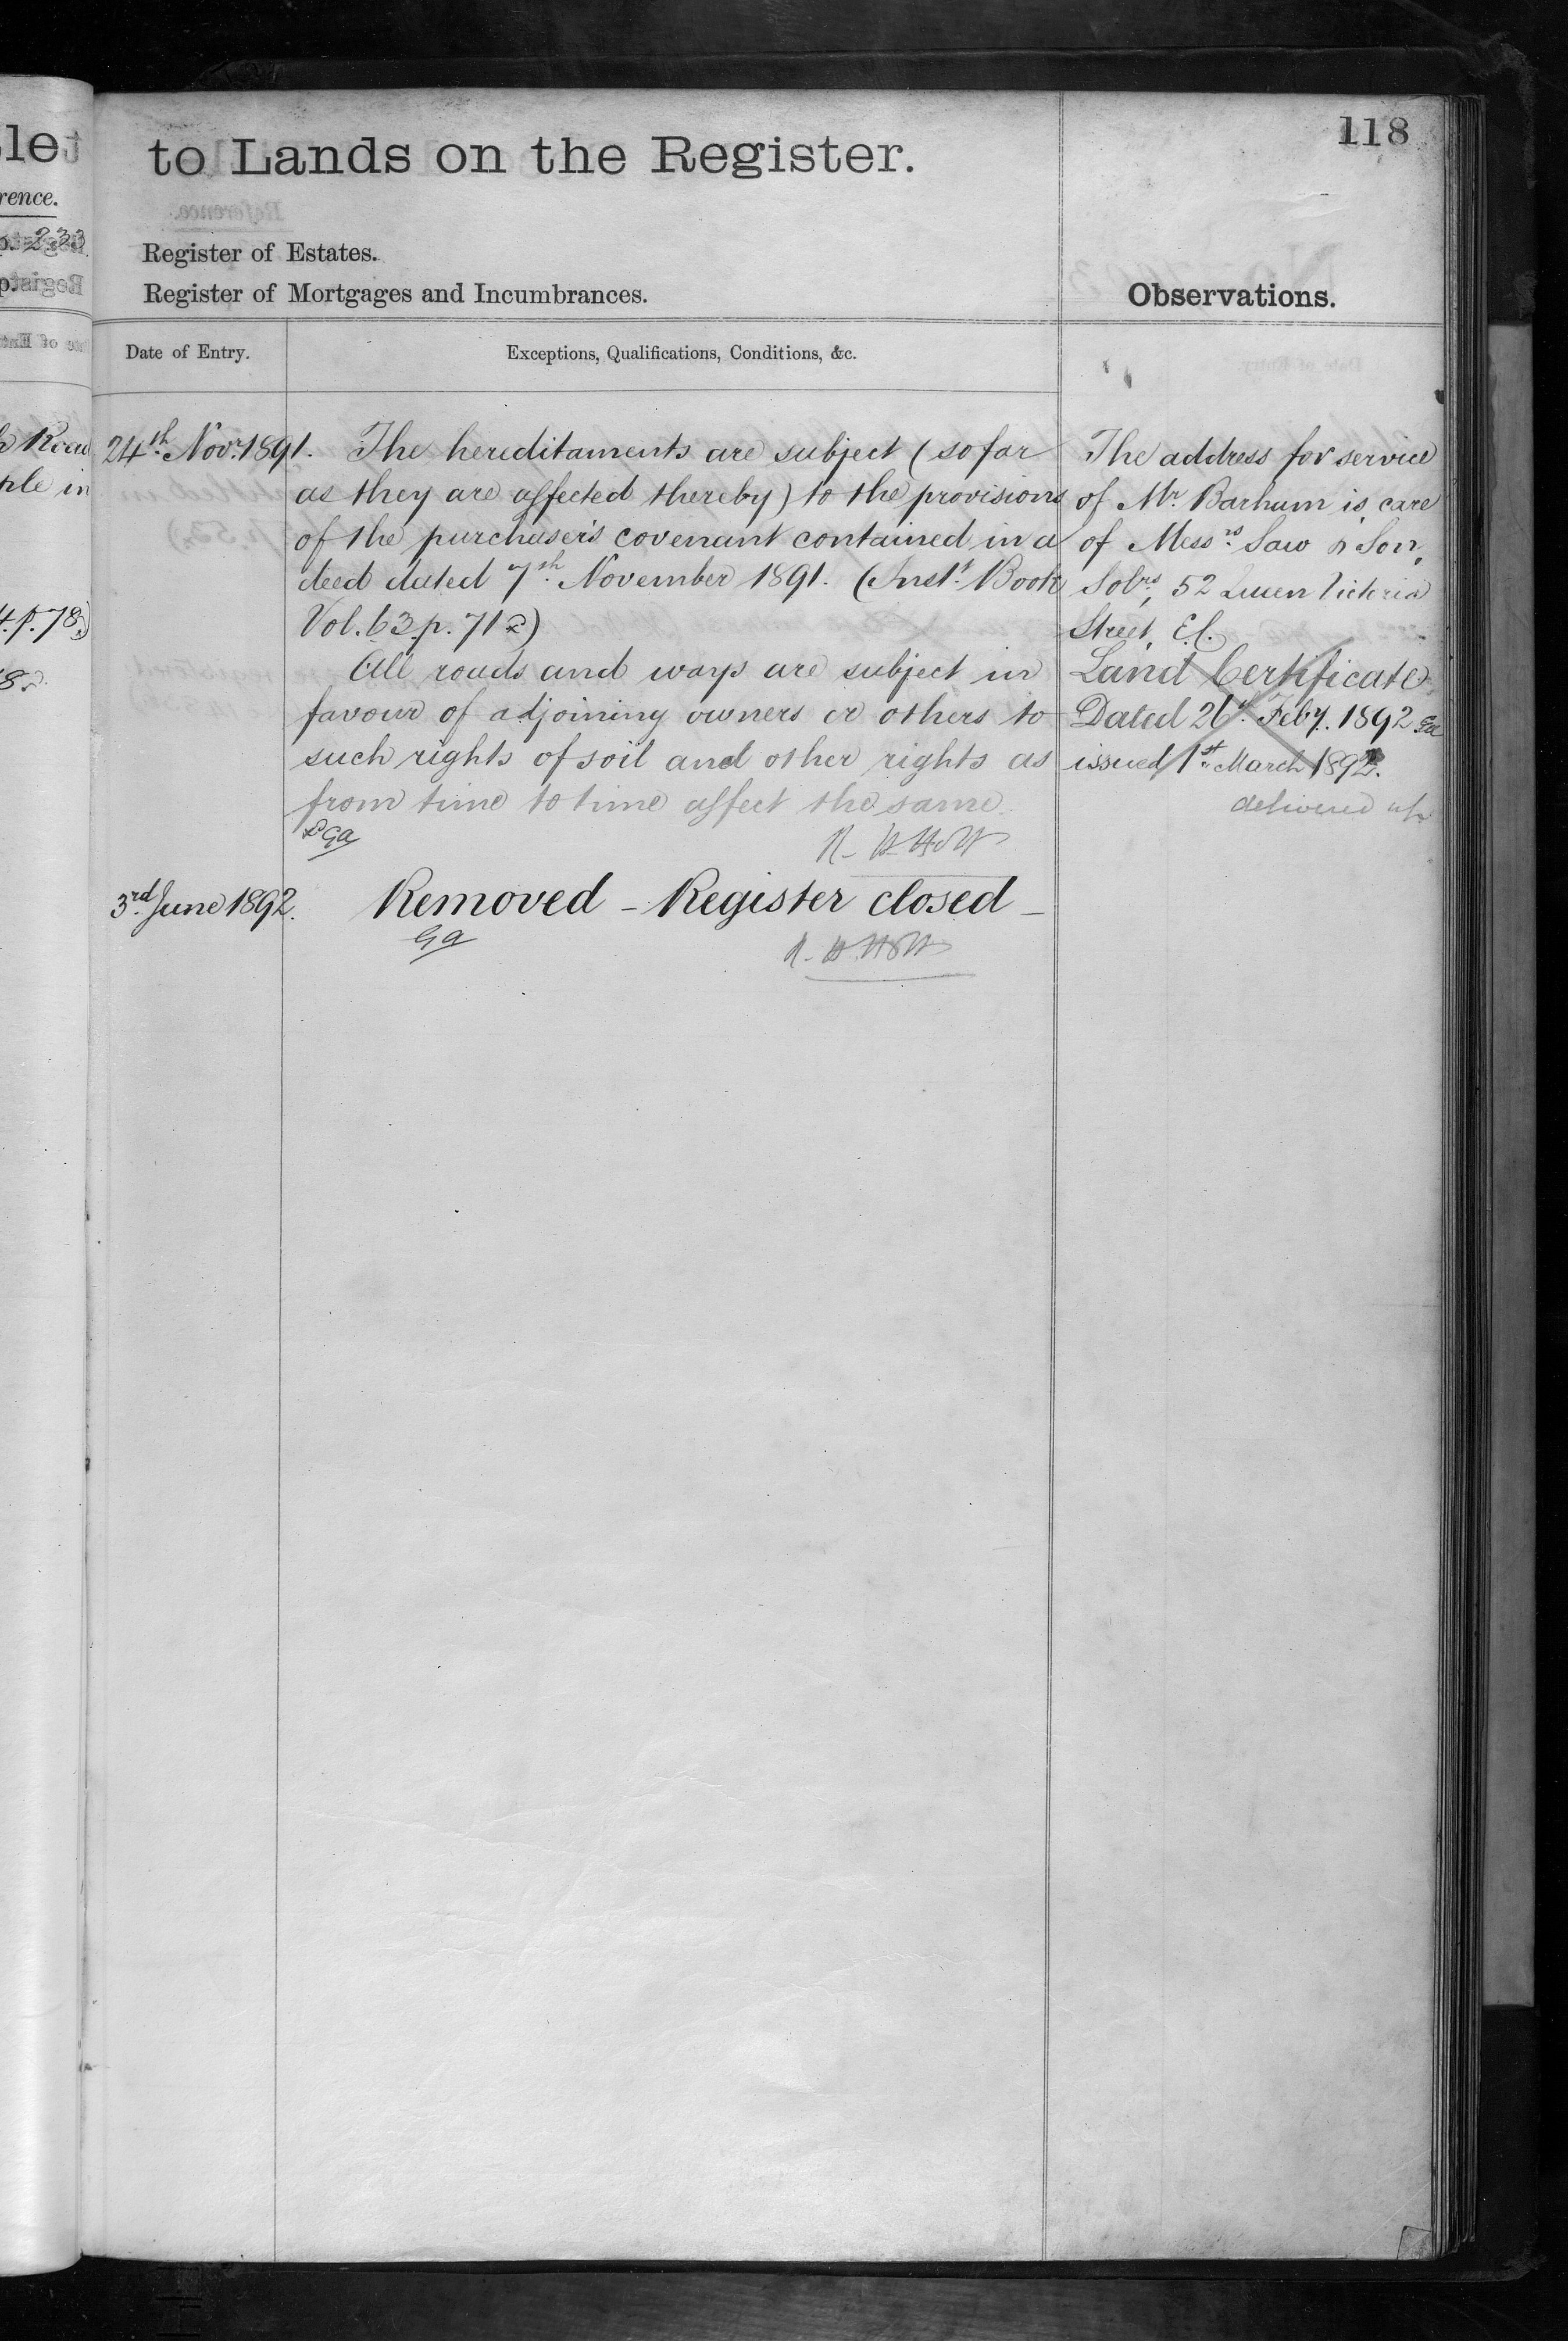 118
to Lands on the Register.
Register of Estates.
Register of Mortgages and Incumbrances.
Observations.
Date of Entry.
Exceptions, Qualifications, Conditions, &c.
24th Novr. 1891.
The hereditaments are subject (so far
as they are affected thereby) to the provisions
of the purchaser's covenant contained in a
deed dated 7th November 1891. (Inst. Book
Vol. 63 p. 71
All roads and ways are subject in
favour of adjoining owners or others to
such rights of soil and other rights as
from time to time affect the same.
Ga
R. H. Holt
3rd June 1892.
Removed - Register closed -
Ga
R. H. Holt
The address for service
of Mr. Barhum is care
of Messrs Saw & Son,
Solrs, 52 Queen Victoria
Street, E.C.
Land Certificate
Dated 26th Feby. 1892 Ga
issued 1st March 1892.
delivered up
rence.
p. 233